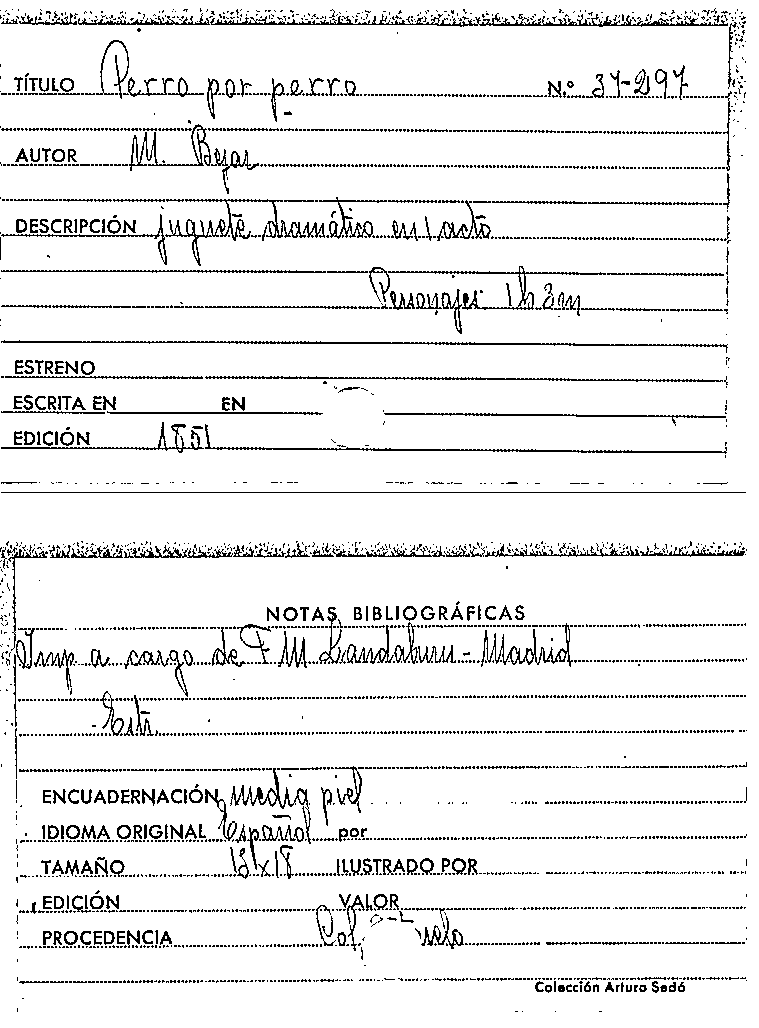 TÍTULO Perro por perro N.º 37-297
AUTOR M. Bejar
DESCRIPCIÓN juguete dramático en 1 acto
Personajes 1h 3m
ESTRENO
ESCRITA EN EN
EDICIÓN 1851
NOTAS BIBLIOGRÁFICAS
Imp a cargo de F M Landaburu - Madrid
Estr.
ENCUADERNACIÓN media piel
IDIOMA ORIGINAL Español por
TAMAÑO ILUSTRADO POR
EDICIÓN VALOR
PROCEDENCIA
Colección Arturo Sedó